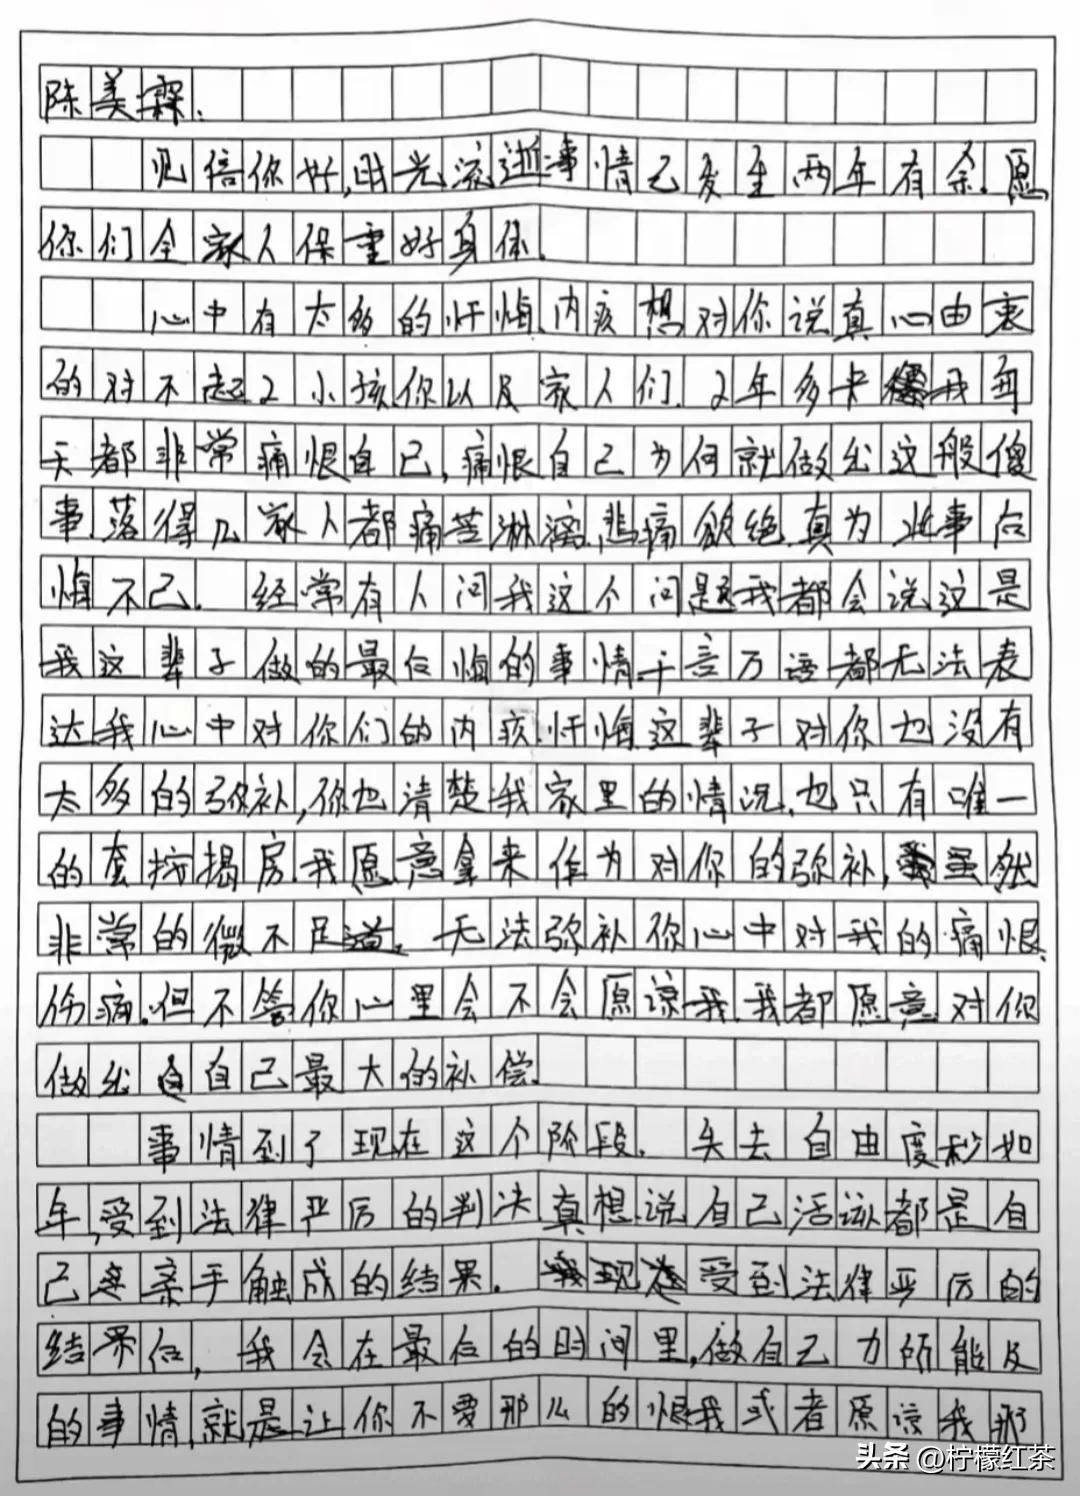 陈美霖:
见信你好,时光流逝事情已发生两年有余.愿
你们全家人保重好身体.
心中有太多的忏悔、内疚想对你说真心由衷
的对不起2小孩.你以及家人们.2年多来我每
天都非常痛恨自己,痛恨自己为何就做出这般傻
事.落得几家人都痛苦淋漓,悲痛欲绝.真为此事后
悔不已. 经常有人问我这个问题我都会说这是
我这辈子做的最后悔的事情.千言万语都无法表
达我心中对你们的内疚.忏悔.这辈子对你也没有
太多的弥补,你也清楚我家里的情况.也只有唯一
的套按揭房我愿意拿来作为对你的弥补,虽然
非常的微不足道. 无法弥补你心中对我的痛恨、
伤痛.但不管你心里会不会愿谅我.我都愿意对你
做出自己最大的补偿.
事情到了现在这个阶段. 失去自由度秒如
年,受到法律严厉的判决真想说自己活该都是自
己亲手触成的结果. 受到法律严厉的
结果后, 我会在最后的时间里,做自己力所能及
的事情,就是让你不要那么的恨我或者原谅我那
头条 @柠檬红茶